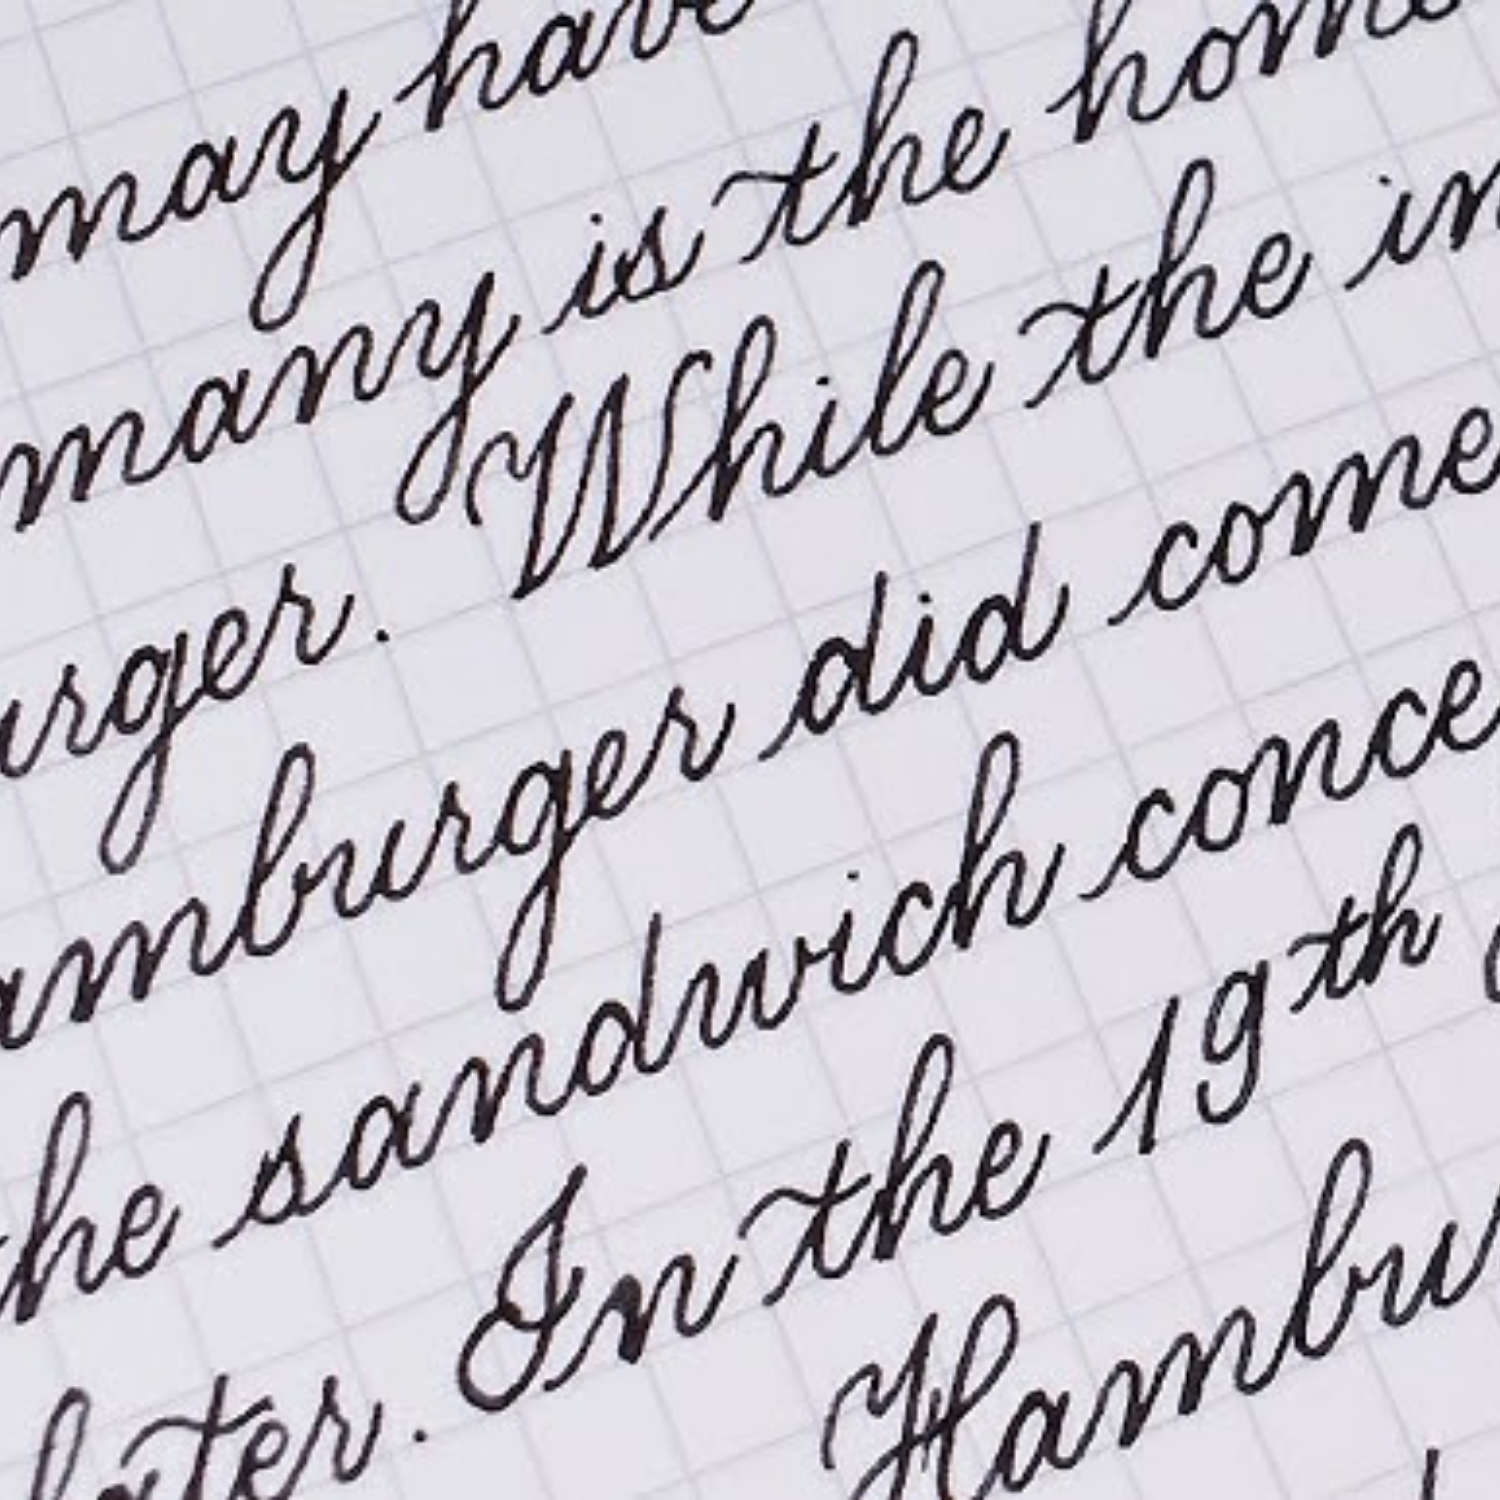 may have
many is the home
urger. While the in
amburger did come
he sandwich conce
later. In the 19th
Hambu